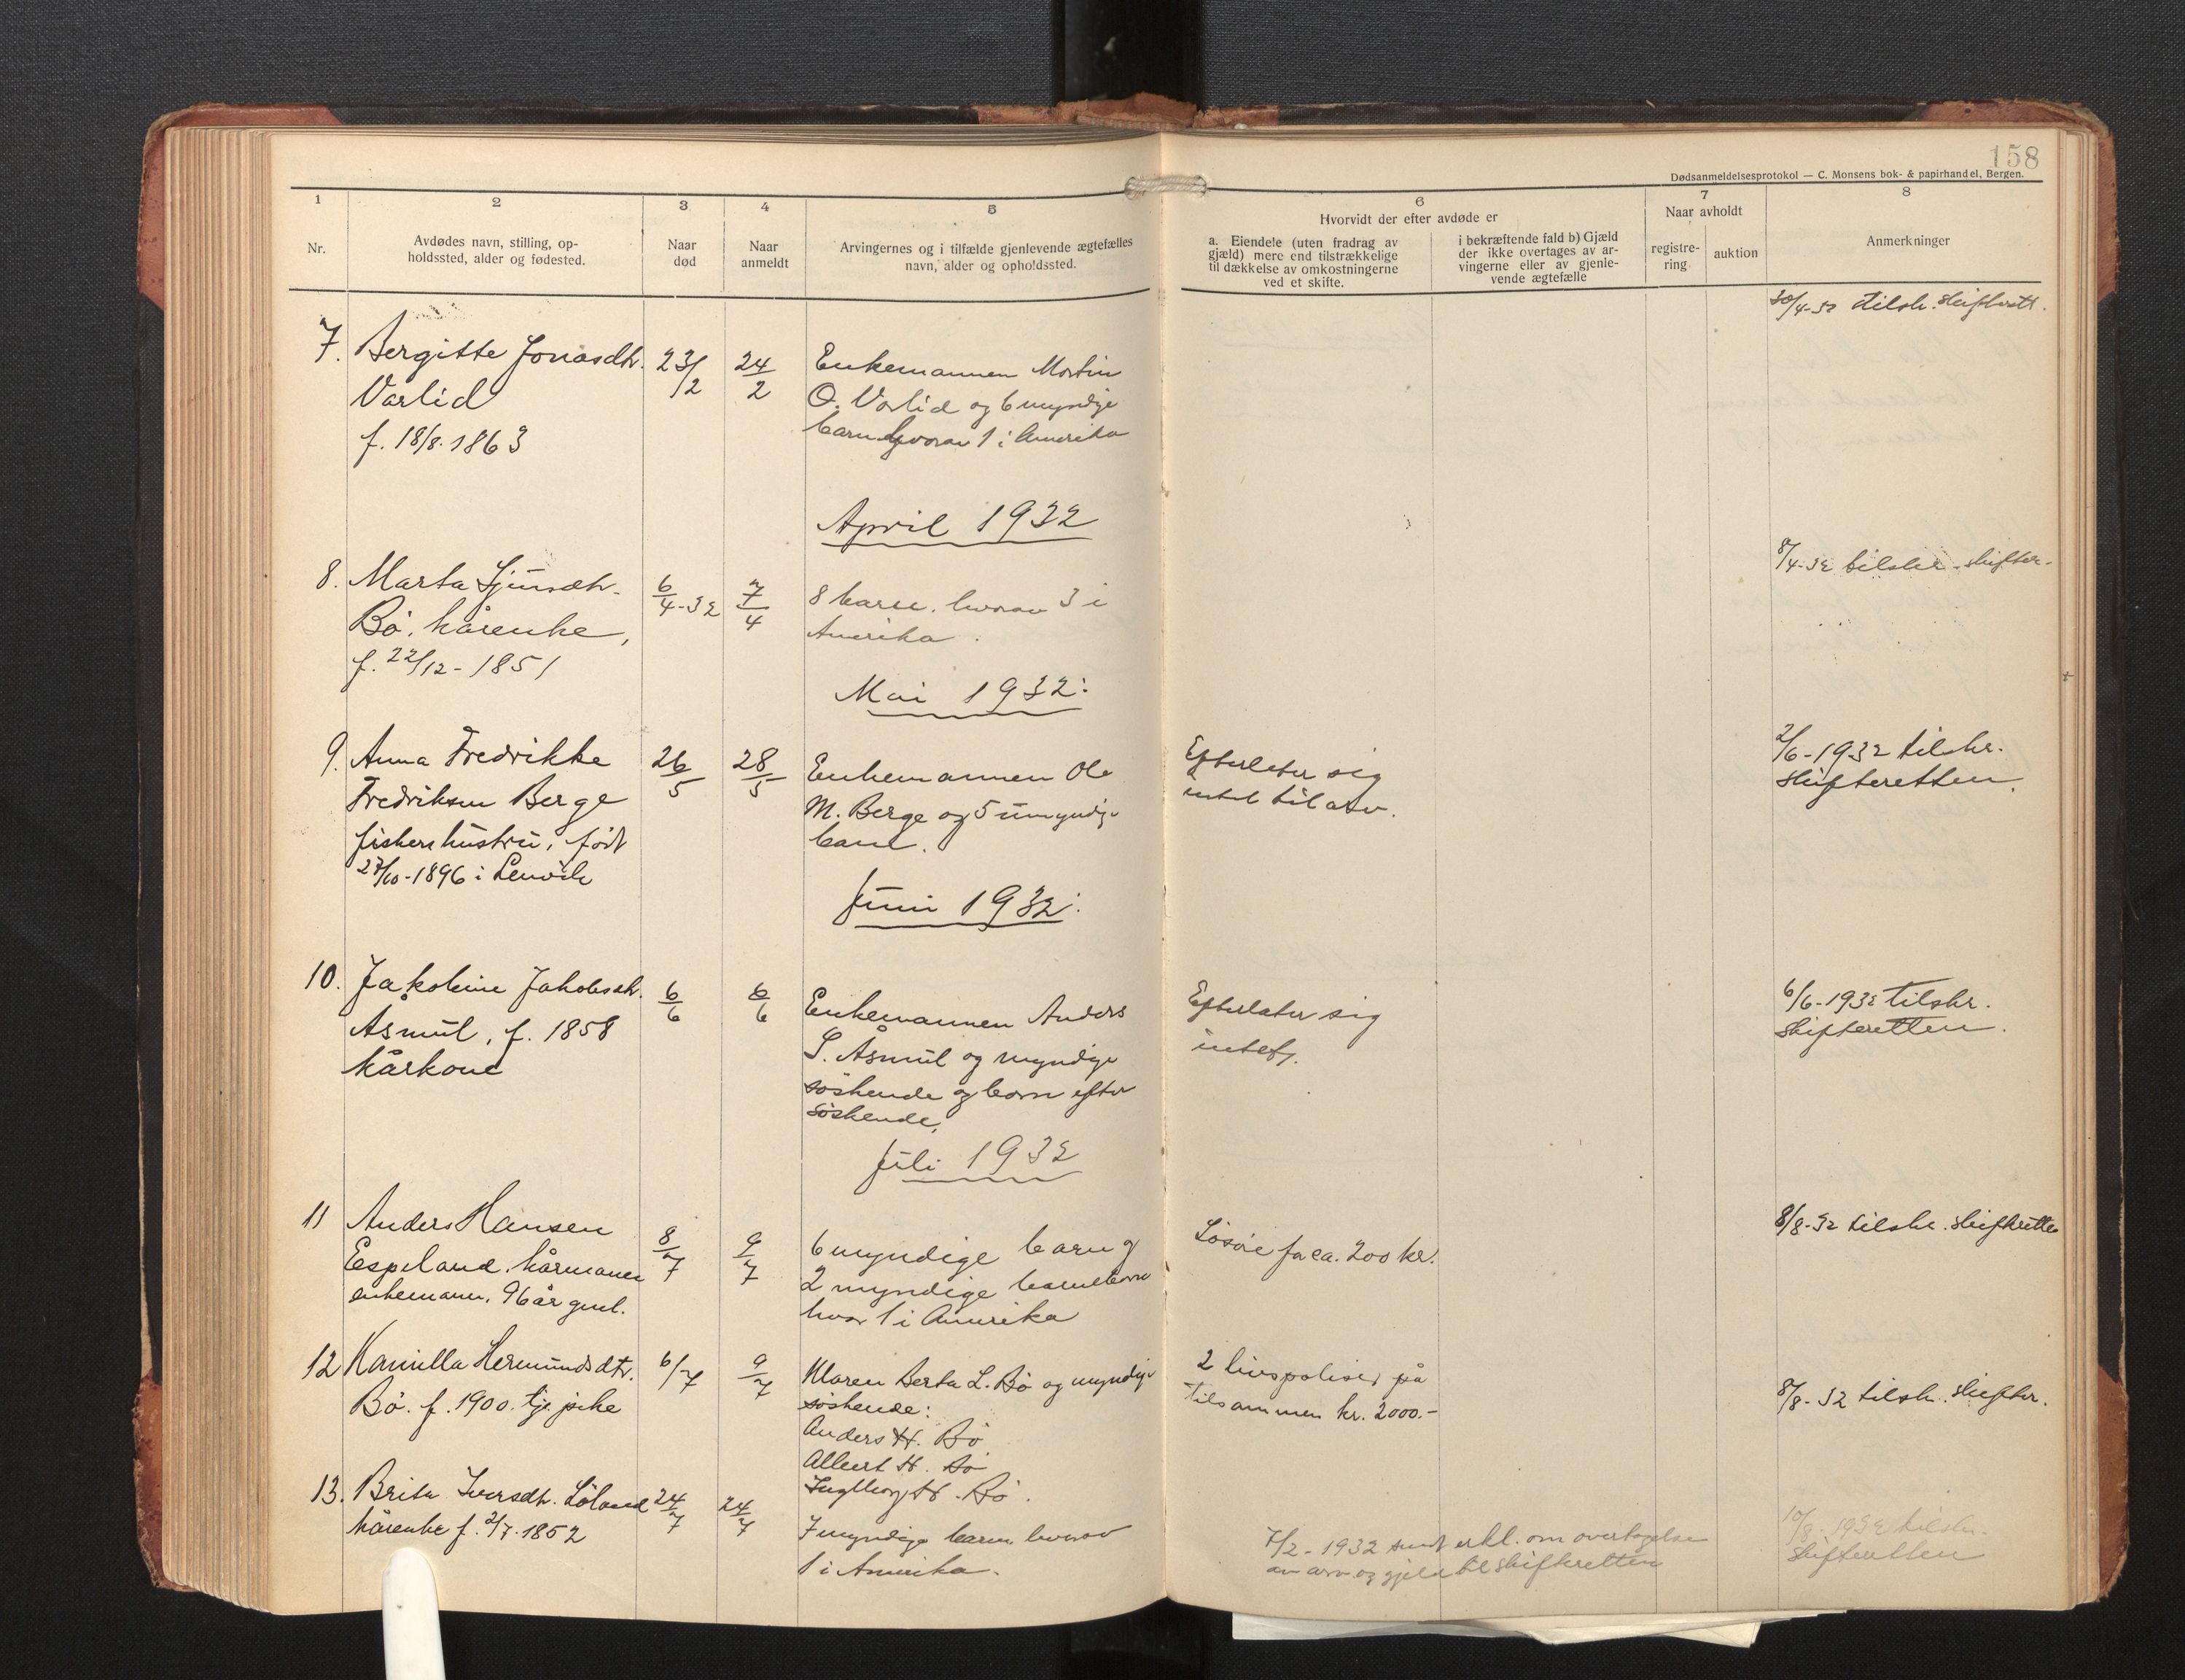 158
Dødsanmeldelsesprotokol — C. Monsens bok- & papirhandel, Bergen.
1 2 3 4 5 6 7 8
Nr.
Avdødes navn, stilling, op-
holdssted, alder og fødested.
Naar
død
Naar
anmeldt
Arvingernes og i tilfælde gjenlevende ægtefælles
navn, alder og opholdssted.
Hvorvidt der efter avdøde er
a. Eiendele (uten fradrag av
gjæld) mere end tilstrækkelige
til dækkelse av omkostningerne
ved et skifte.
i bekræftende fald b) Gjæld
der ikke overtages av ar-
vingerne eller av gjenle-
vende ægtefælle
Naar avholdt
registre-
ring
auktion
Anmerkninger
7. Bergitte Jonasdtr.
Varlid
f. 18/8. 1863
23/2
24/2
Enkemannen Martin
O. Varlid og 6 myndige
barn hvorav 1 i Amerika
30/4-32 tilskr. skifterett.
April 1932
8. Marta
Bö, kårenke,
f. 22/12-1851
6/4-32
7/4
8 barn, hvorav 3 i
Amerika.
8/4-32 tilskr. skifter.
Mai 1932:
9. Anna Fredrikke
Fredriksen Berge
fiskerhustru, født
27/10-1896 i Lenvik
26/5
28/5
Enkemannen Ole
M. Berge og 5 umyndige
barn.
Efterlater sig
intet til arv.
2/6-1932 tilskr.
skifteretten.
Juni 1932:
10. Jakobine Jakobsdtr.
Åsmul, f. 1858
kårkone
6/6
6/6
Enkemannen Anders
S. Åsmul og myndige
søskende og barn efter
søskende.
Efterlater sig
intet.
6/6-1932 tilskr.
skifteretten.
Juli 1932
11 Anders Hansen
Espeland, kårmann
enkemann, 96 år gml.
8/7
9/7
6 myndige barn og
2 myndige barnebarn
hvor 1 i Amerika
Løsøre for ca. 200 kr.
8/8-32 tilskr. skifteretten
12 Kamilla Hermundsdtr.
Bö. f. 1900. tj. pike
6/7
9/7
Maren Berta L. Bö og myndige
søskende:
Anders H. Bö
Albert H. Bö
Ingeborg H. Bö.
2 livspoliser på
tilsammen kr. 2000.-
8/8-32 tilskr. skifter.
13. Brita Iversdtr. Löland
kårenke f. 2/7. 1852
24/7
24/7
7 myndige barn, hvorav
1 i Amerika.
7/2-1932 sendt erkl. om overtagelse
av arv og gjeld til skifteretten
10/8-1932 tilskr.
skifteretten